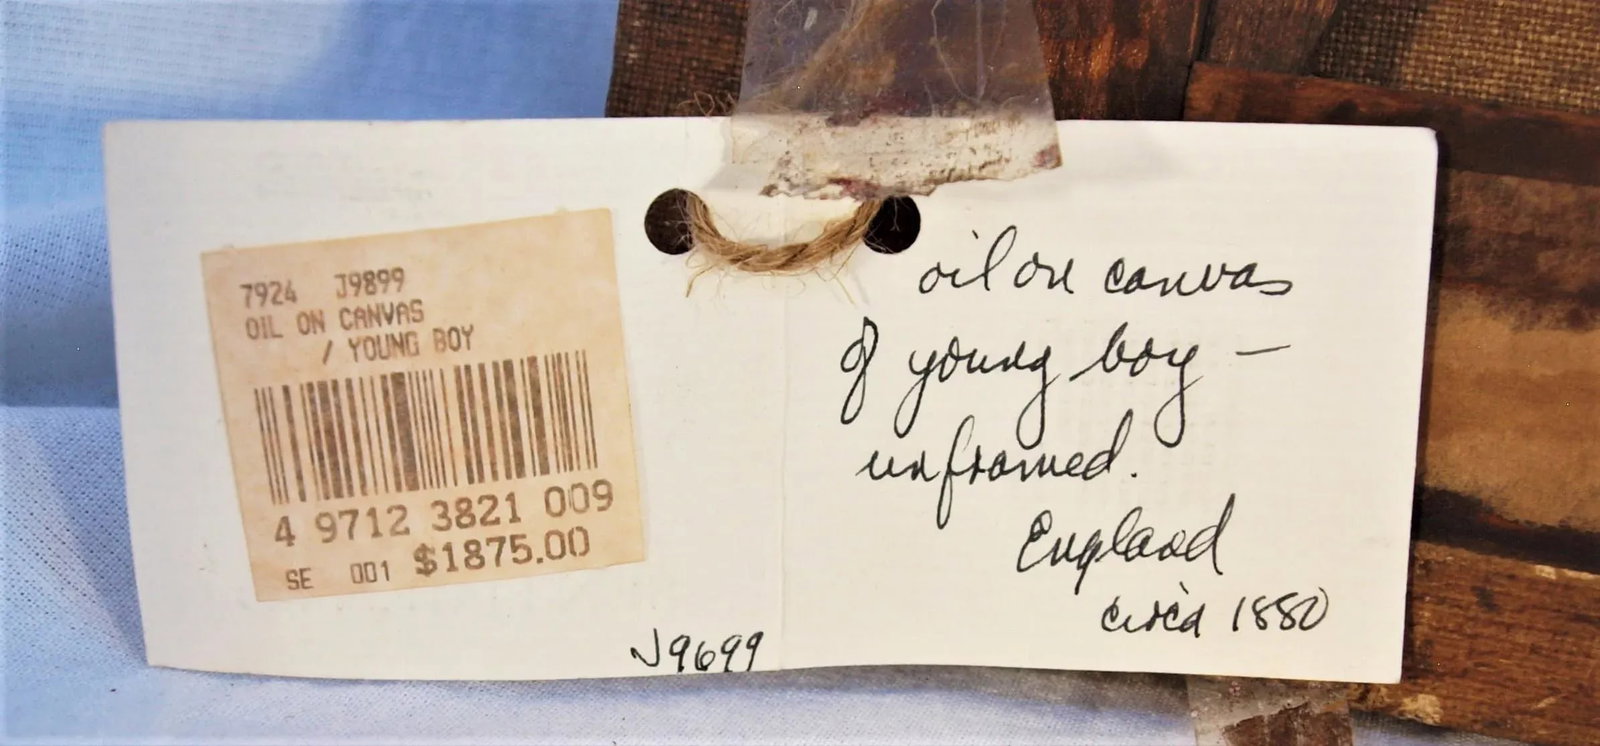 7924 J9899
OIL ON CANVAS
/ YOUNG BOY
4 9712 3821 009
SE 001 $1875.00
J9699
oil on canvas
of young boy —
unframed.
England
circa 1880